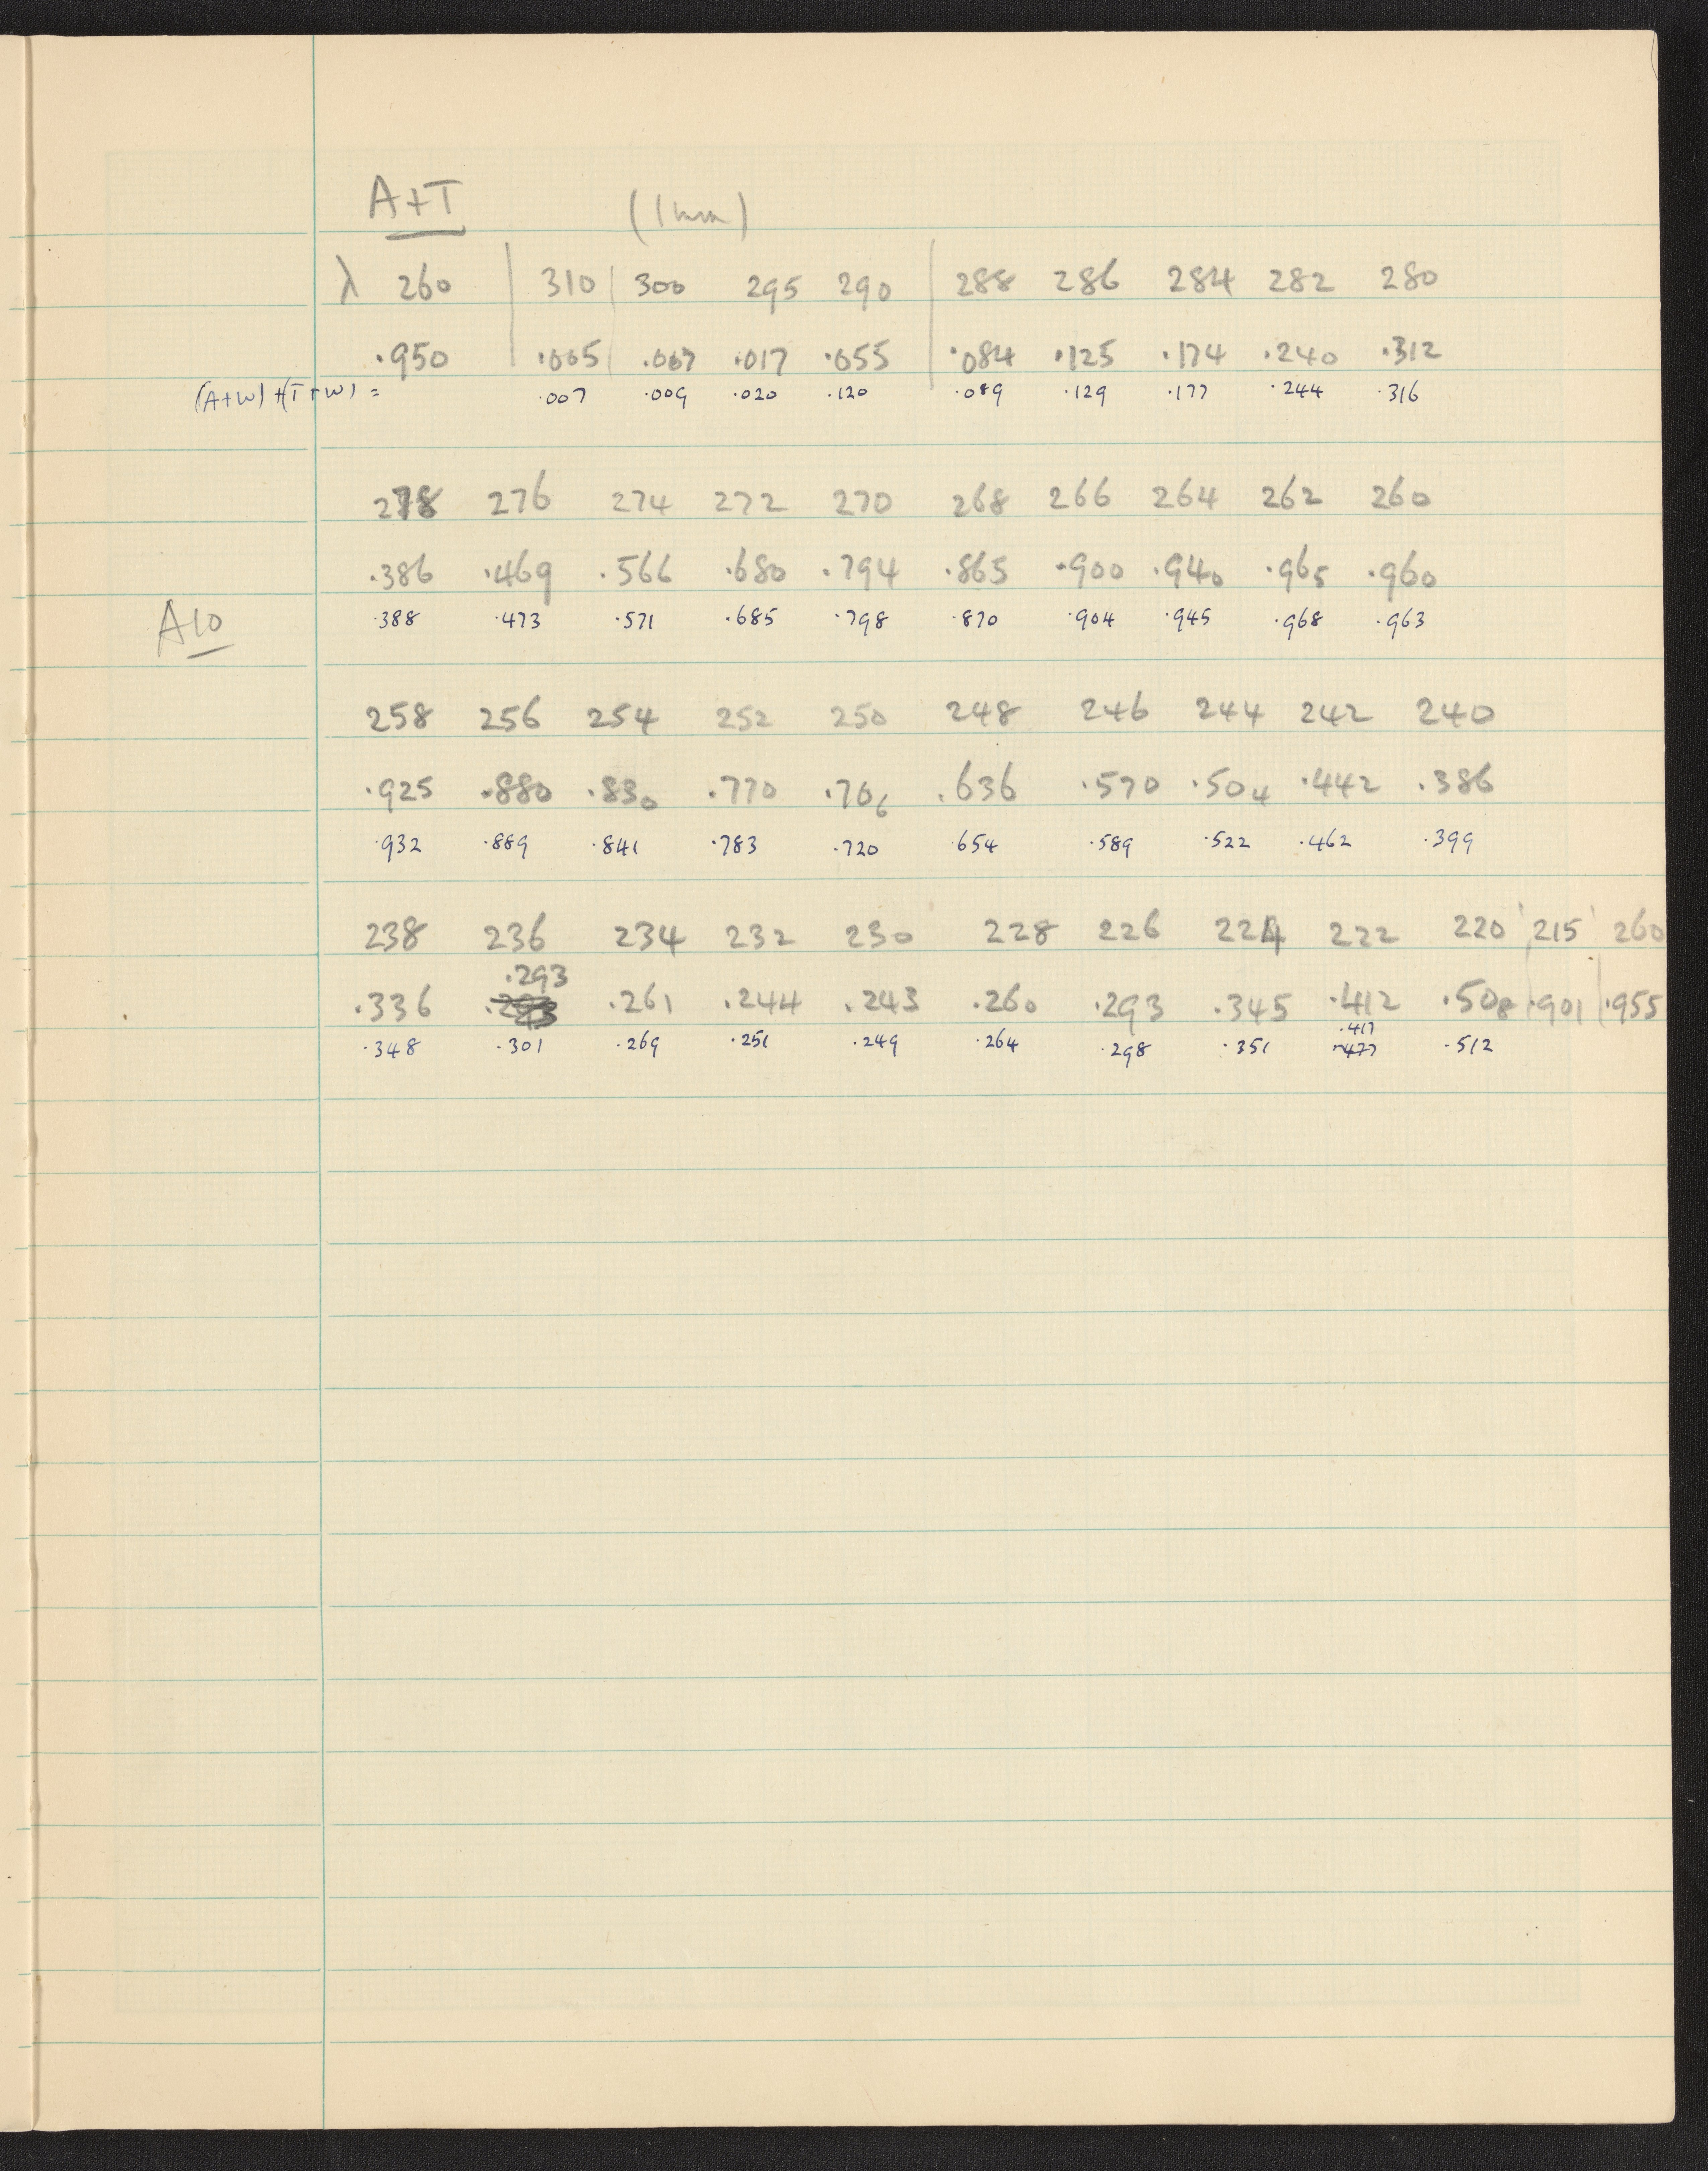 A+T (1 mm)
λ 260 310 300 295 290 288 286 284 282 280
.950 .005 .007 .017 .055 .084 .125 .174 .240 .312
(A+W) + (T+W) = .007 .009 .020 .120 .089 .129 .177 .244 .316
278 276 274 272 270 268 266 264 262 260
.386 .469 .566 .680 .794 .865 .900 .940 .965 .960
A10 .388 .473 .571 .685 .798 .870 .904 .945 .968 .963
258 256 254 252 250 248 246 244 242 240
.925 .880 .830 .770 .706 .636 .570 .504 .442 .386
.932 .889 .841 .783 .720 .654 .589 .522 .462 .399
238 236 234 232 230 228 226 224 222 220 215 260
.293
.336 .261 .244 .243 .260 .293 .345 .412 .508 .901 .955
.417
.348 .301 .269 .251 .249 .264 .298 .351 .477 .512